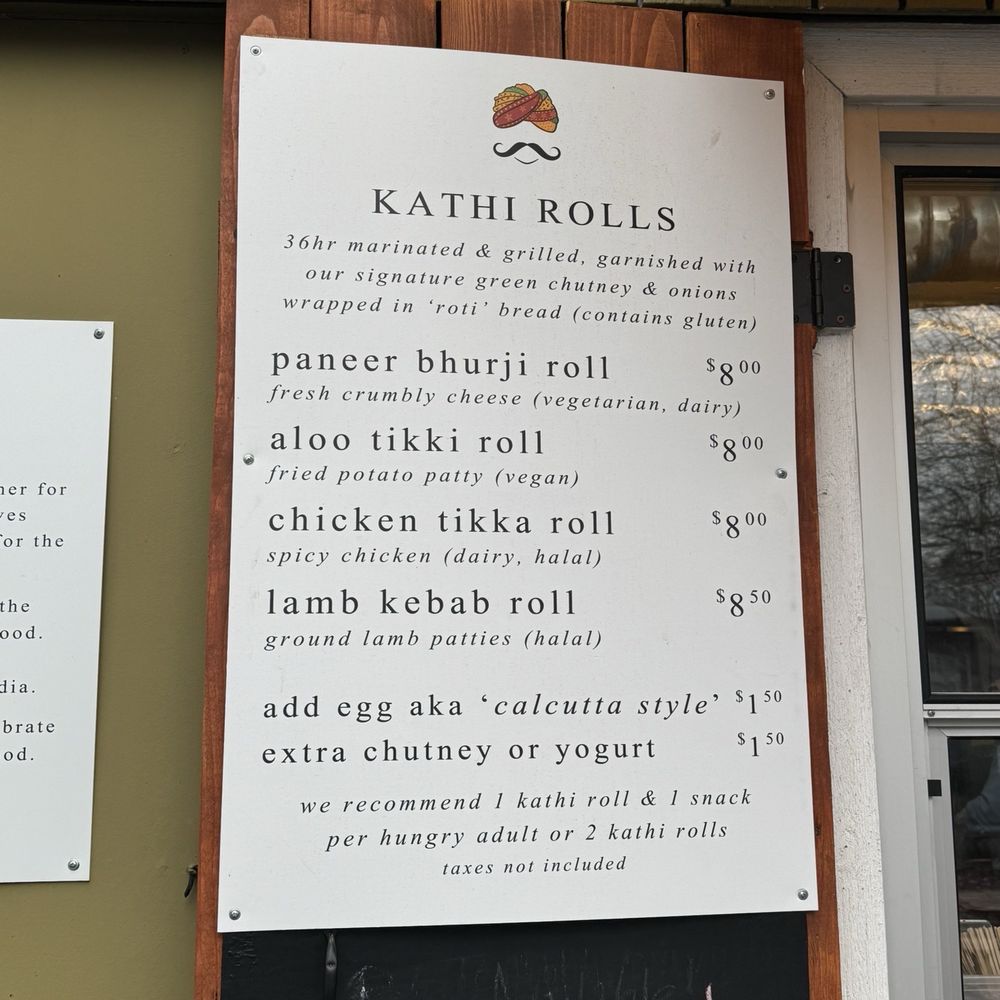 KATHI ROLLS
36hr marinated & grilled, garnished with
our signature green chutney & onions
wrapped in ‘roti’ bread (contains gluten)
paneer bhurji roll $8 00
fresh crumbly cheese (vegetarian, dairy)
aloo tikki roll $8 00
fried potato patty (vegan)
chicken tikka roll $8 00
spicy chicken (dairy, halal)
lamb kebab roll $8 50
ground lamb patties (halal)
add egg aka ‘calcutta style’ $1 50
extra chutney or yogurt $1 50
we recommend 1 kathi roll & 1 snack
per hungry adult or 2 kathi rolls
taxes not included
for
for the
the